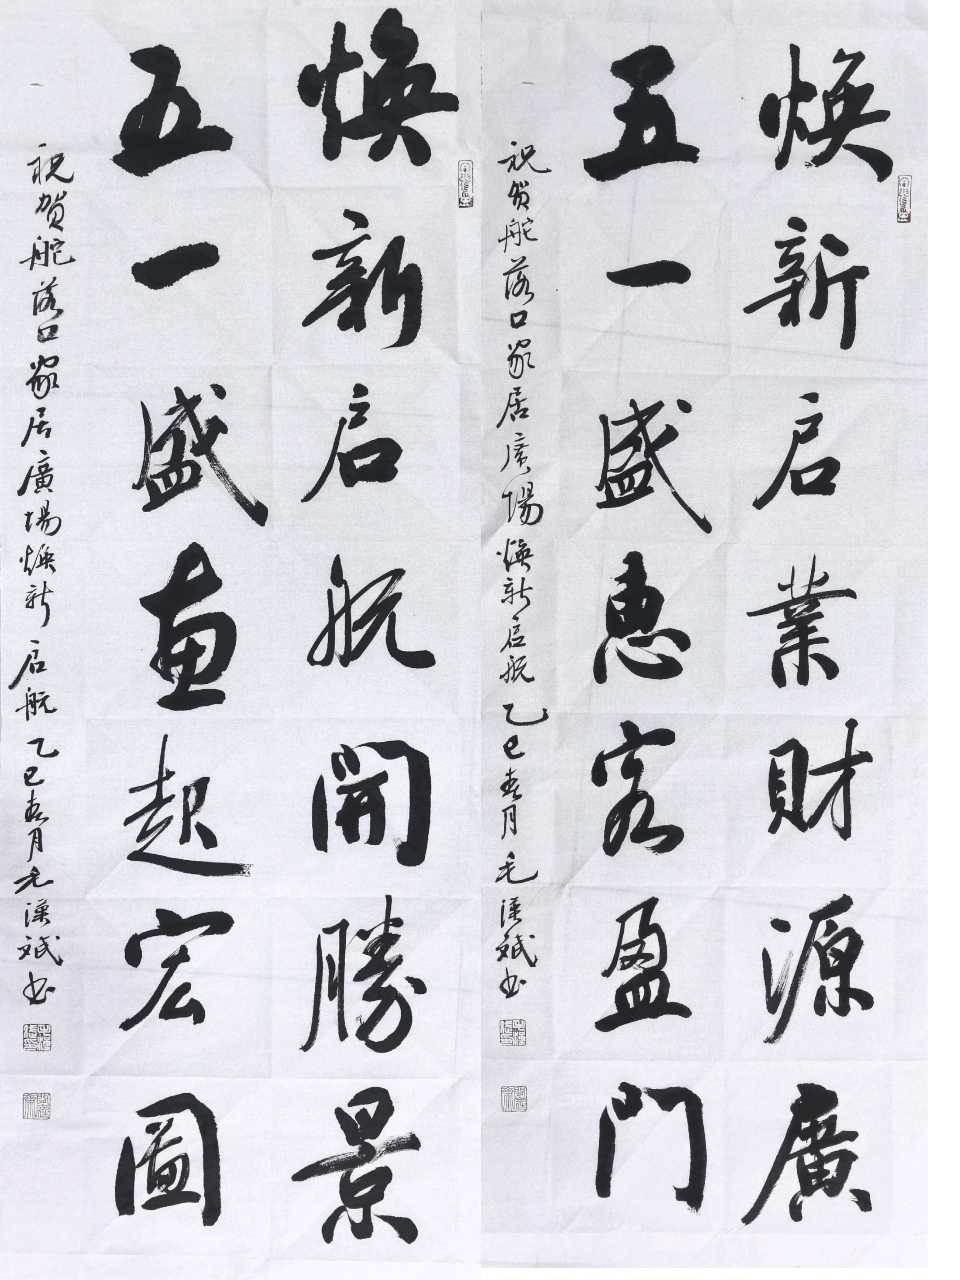 焕新启業財源廣
五一盛惠客盈門
祝贺舵落口家居廣場焕新启航乙巳春月毛漢斌书
焕新启航開勝景
五一盛画起宏圖
祝贺舵落口家居廣場焕新启航乙巳春月毛漢斌书